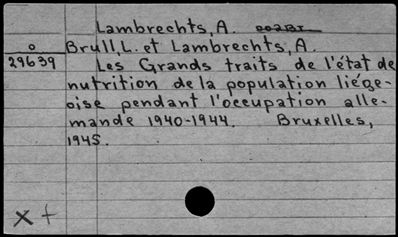 Lambrechts, A.
o Brull, L. et Lambrechts, A.
29639 Les Grands traits de l'état de
nutrition de la population liége-
oise pendant l'occupation alle-
mande 1940-1944. Bruxelles,
1945.
x +